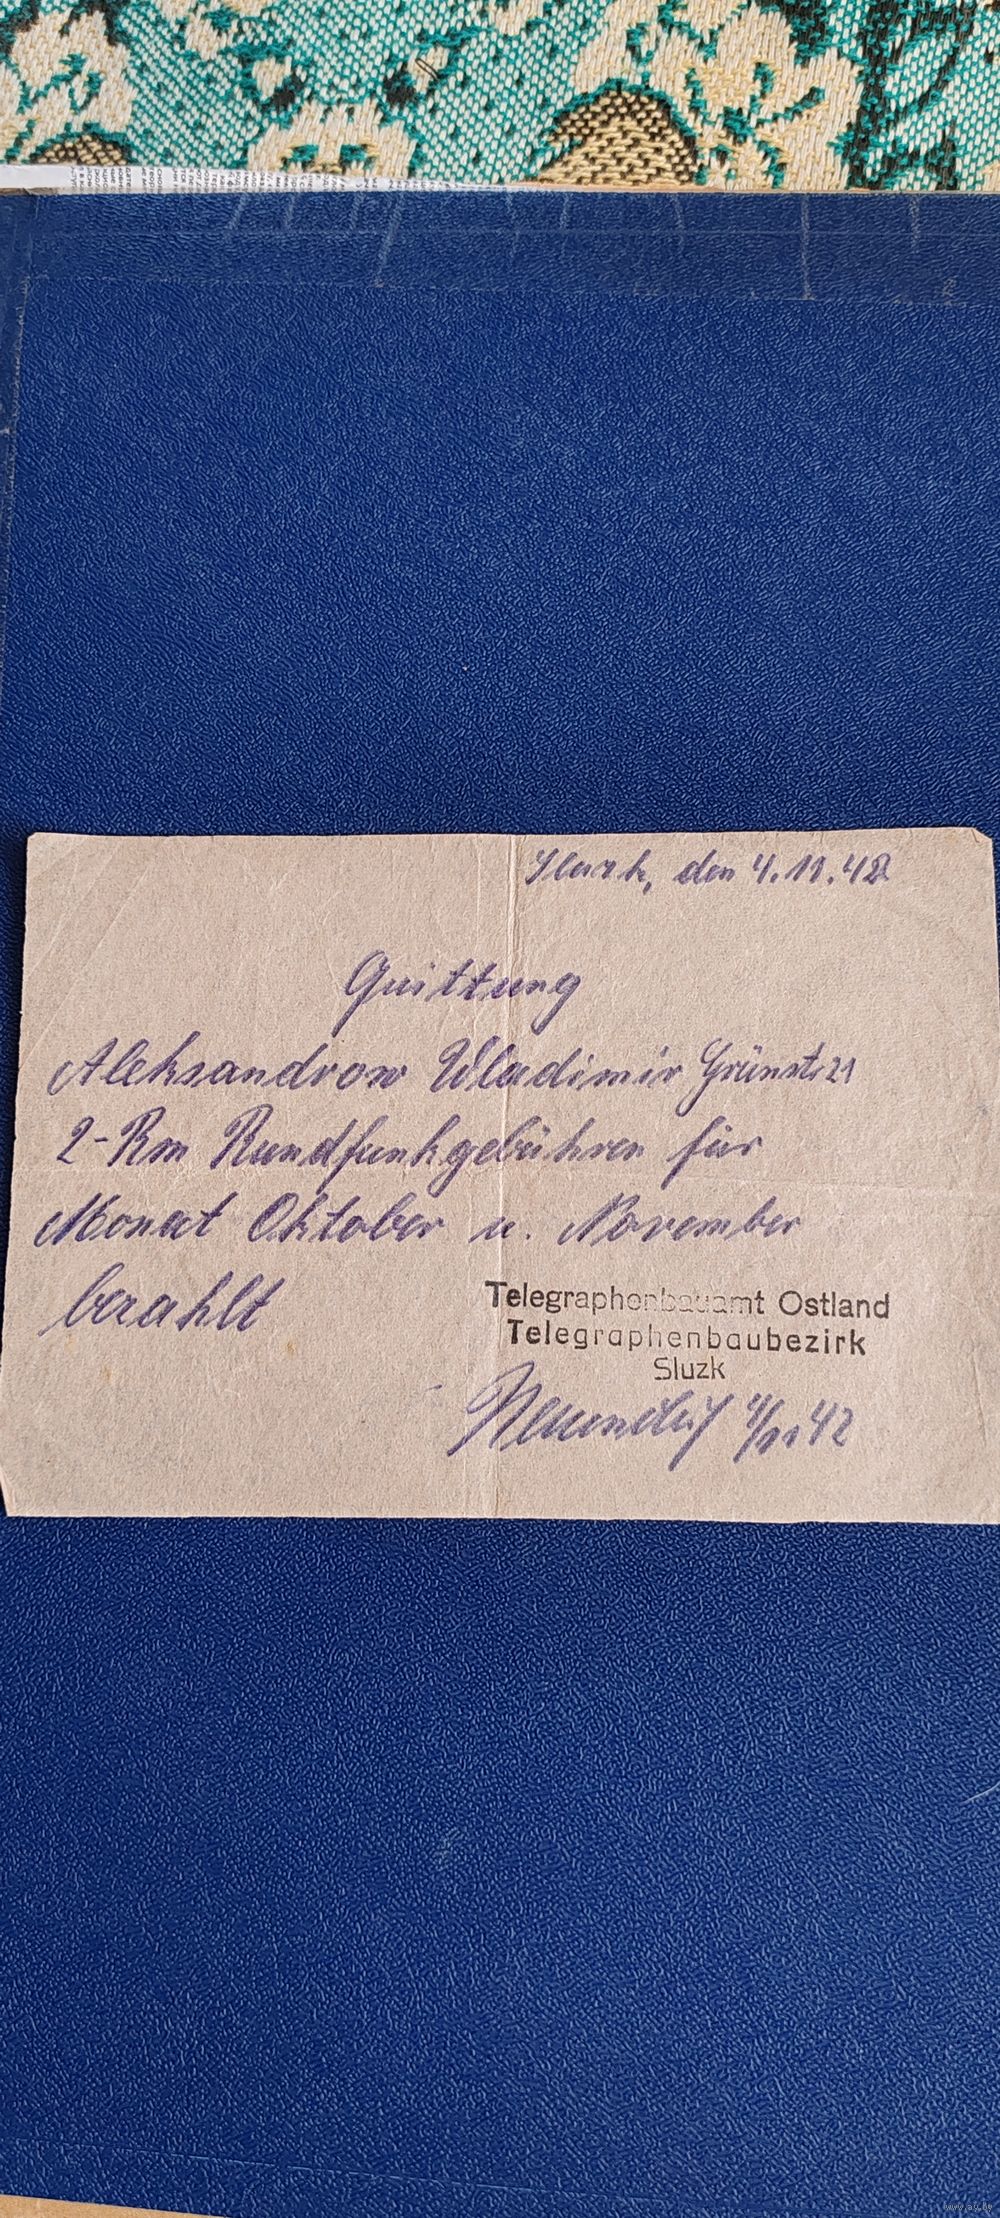 Sluzk, den 4.11.42
Quittung
Aleksandrow Wladimir Grünstr 21
2-Rm Rundfunkgebühren für
Monat Oktober u. November
bezahlt
Telegraphenbauamt Ostland
Telegraphenbaubezirk
Sluzk
4/11 42
www.ay.by